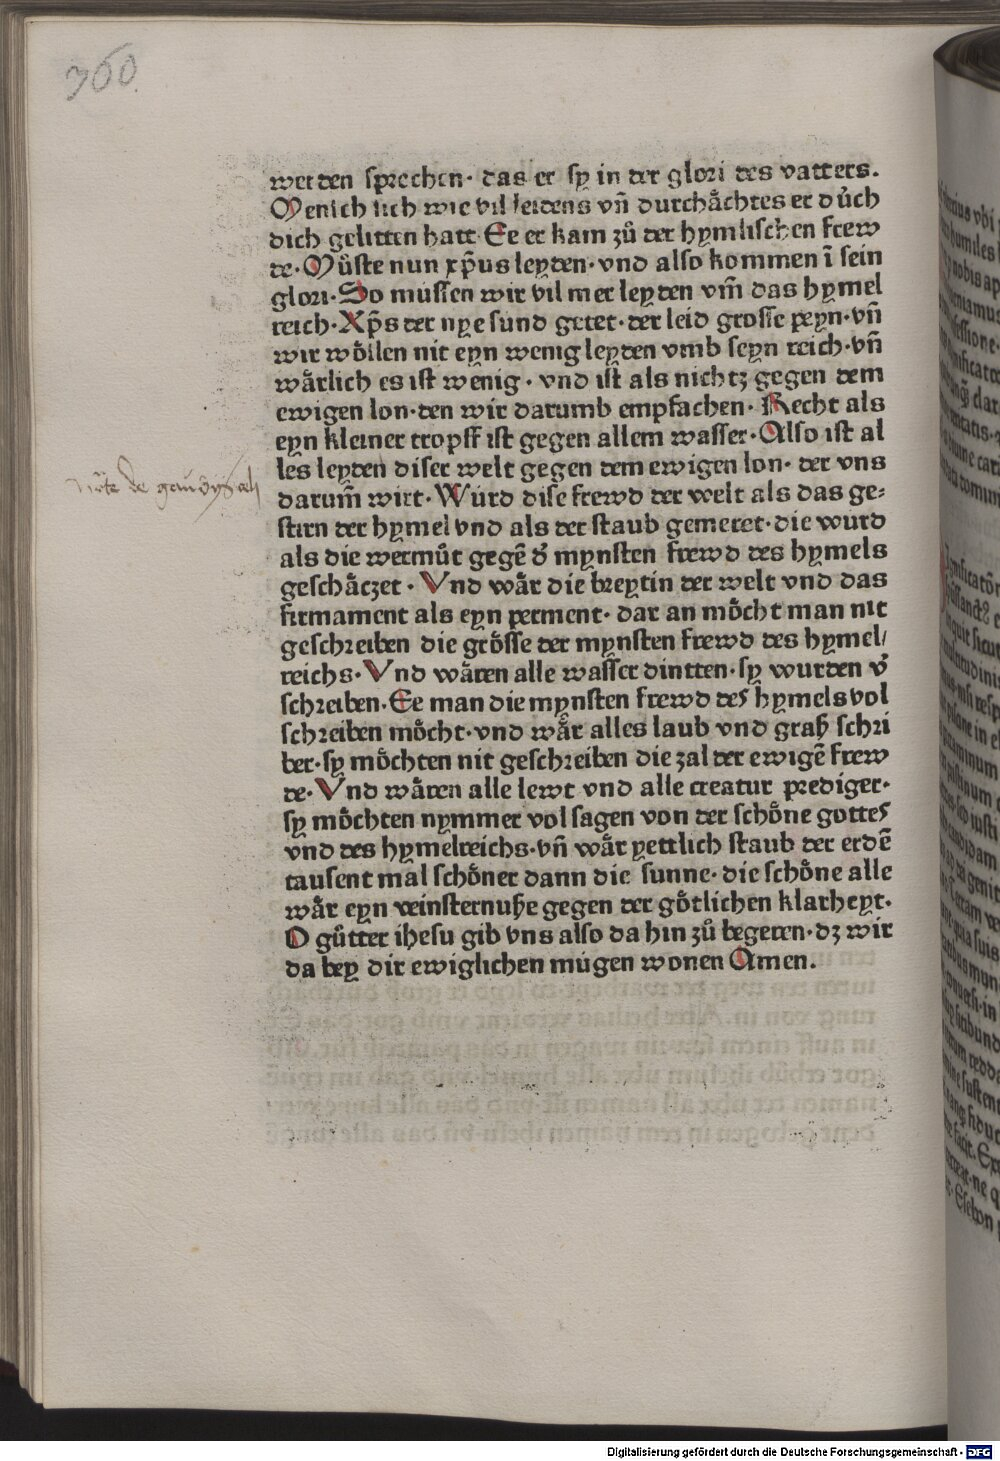 360.
werden sprechen· das er sy in der glori des vatters.
Mensch sich wie vil leidens vn̄ durchaͤchtes er duͤch
dich gelitten hatt Ee er kam zuͦ der hymlischen frew
de· Muͦste nun xp̄us leyden· vnd also kommen ī sein
glori· So müssen wir vil mer leyden vm̄ das hymel
reich· Xp̄s der nye sünd getet· der leid grosse peyn· vn̄
wir woͤllen nit eyn wenig leyden vmb seyn reich· vn̄
waͤrlich es ist wenig· vnd ist als nichtz gegen dem
ewigen lon· den wir darumb empfachen· Recht als
eyn kleiner tropff ist gegen allem wasser· Also ist al
les leyden diser welt gegen dem ewigen lon· der vns
darum̄ wirt· Würd dise frewd der welt als das ge⸗
stirn der hymel vnd als der staub gemeret· die wurd
als die wermuͦt gegē d̓ mynsten frewd des hymels
geschaͤczet· Vnd waͤr die breytin der welt vnd das
firmament als eyn perment· dar an moͤcht man nit
geschreiben die groͤsse der mynsten frewd des hymel/
reichs· Vnd waͤren alle wasser dintten· sy wurden v̓
schreiben· Ee man die mynsten frewd des hymels vol
schreiben moͤcht· vnd waͤr alles laub vnd graß schri
ber· sy moͤchten nit geschreiben die zal der ewigē frew
de· Vnd waͤren alle lewt vnd alle creatur prediger·
sy moͤchten nymmer vol sagen von der schoͤne gottes
vnd des hymelreichs· vn̄ waͤr yettlich staub der erdē
tausent mal schoͤner dann die sunne· die schoͤne alle
waͤr eyn veinsternuße gegen der goͤtlichen klarheyt·
O guͤtter ihesu gib vns also da hin zuͦ begeren· dz wir
da bey dir ewiglichen mügen wonen Amen.
Digitalisierung gefördert durch die Deutsche Forschungsgemeinschaft - DFG